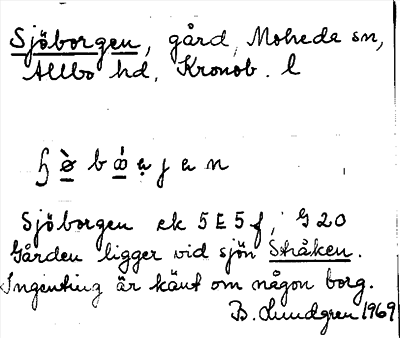 Sjöborgen, gård, Moheda sn,
Allbo hd, Kronob. l
Sjöborgen ek 5E5f, G20
Gården ligger vid sjön Stråken.
Ingenting är känt om någon borg.
B. Lundgren 1969